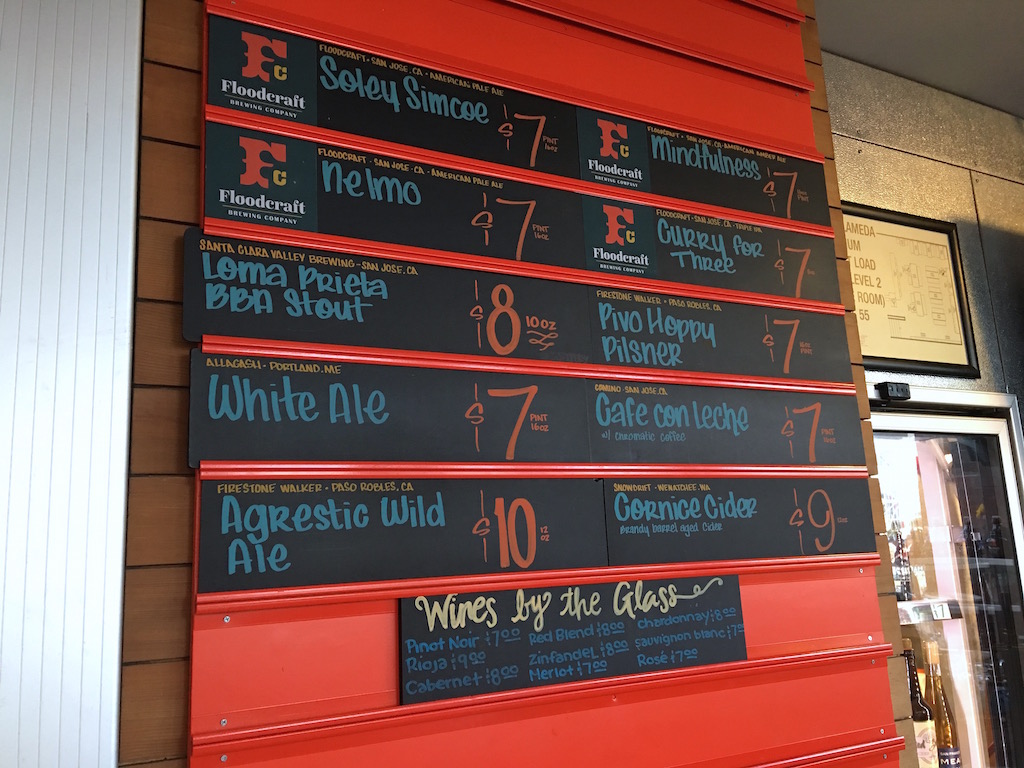 FC
Floodcraft
BREWING COMPANY
FLOODCRAFT • SAN JOSE, CA • AMERICAN PALE ALE
Soley Simcoe
$7
PINT
16oz
FC
Floodcraft
BREWING COMPANY
FLOODCRAFT • SAN JOSE, CA • AMERICAN AMBER ALE
Mindfulness
$7
FC
Floodcraft
BREWING COMPANY
FLOODCRAFT • SAN JOSE • CA • AMERICAN PALE ALE
Nelmo
$7
PINT
16oz
FC
Floodcraft
BREWING COMPANY
FLOODCRAFT • SAN JOSE, CA • TRIPLE IPA
Curry for
Three
$7
SANTA CLARA VALLEY BREWING - SAN JOSE, CA
Loma Prieta
BBA Stout
$8
10oz
FIRESTONE WALKER • PASO ROBLES, CA
Pivo Hoppy
Pilsner
$7
16oz
PINT
ALLAGASH • PORTLAND, ME
White Ale
$7
PINT
16oz
CAMINO • SAN JOSE, CA
Cafe con Leche
w/ chromatic coffee
$7
PINT
16oz
FIRESTONE WALKER • PASO ROBLES, CA
Agrestic Wild
Ale
$10
12
oz
SNOWDRIFT • WENATCHEE, WA
Cornice Cider
Brandy barrel aged Cider
$9
Wines by the Glass
Pinot Noir $7.00
Rioja $9.00
Cabernet $8.00
Red Blend $8.00
Zinfandel $8.00
Merlot $7.00
Chardonnay $8.00
Sauvignon blanc $7.0
Rosé $7.00
LAMEDA
UM
LOAD
LEVEL 2
ROOM)
55
17
MEA